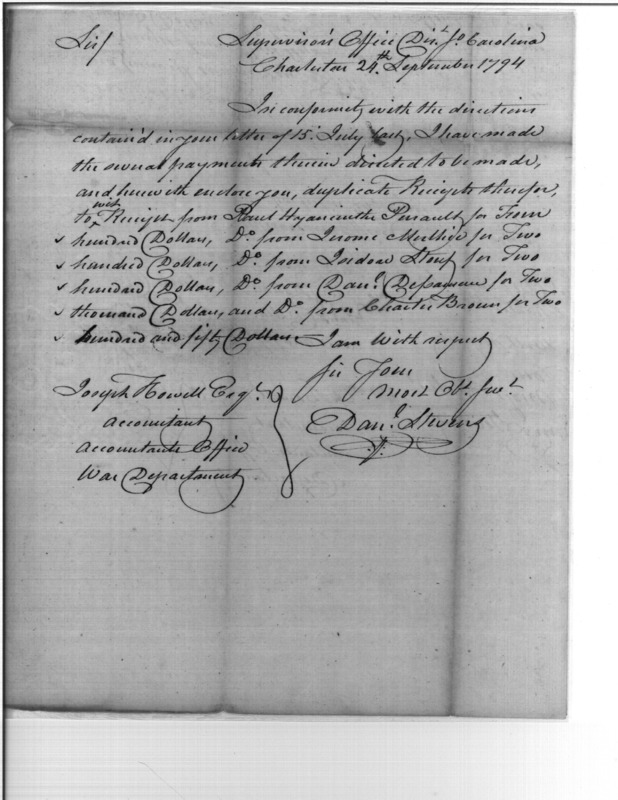 Sir/
Supervisor's Office Dist. So. Carolina
Charleston 24th September 1794
In conformity with the directions
contain'd in your letter of 15. July last, I have made
the several payments therein directed to be made,
and herewith enclose you, duplicate Receipts therefor,
to wit Receipt from Paul Hyacinthe Perault for Four
hundred Dollars, Do from Jerome for Two
hundred Dollars, Do from Isidore for Two
hundred Dollars, Do from Danl. for Two
thousand Dollars, and Do from Charles Brown for Two
hundred and fifty Dollars. I am With respect
Sir Your
most Obt. Servt.
Danl. Stevens
Joseph Howell Esqr.
Accountant
Accountants Office
War Department